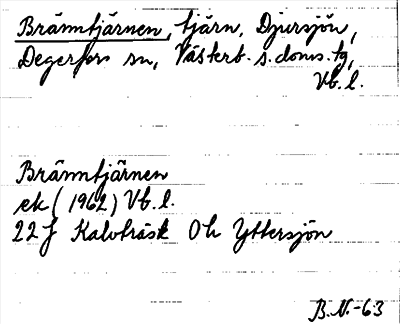 Brännetjärnen, tjärn, Djursjön,
Degerfors sn, Västerb. s. doms. tg,
Vb. l.
Brännetjärnen
ek (1962) Vb. l.
22 J Kalvträsk 0h Yttersjön
B.N.-63